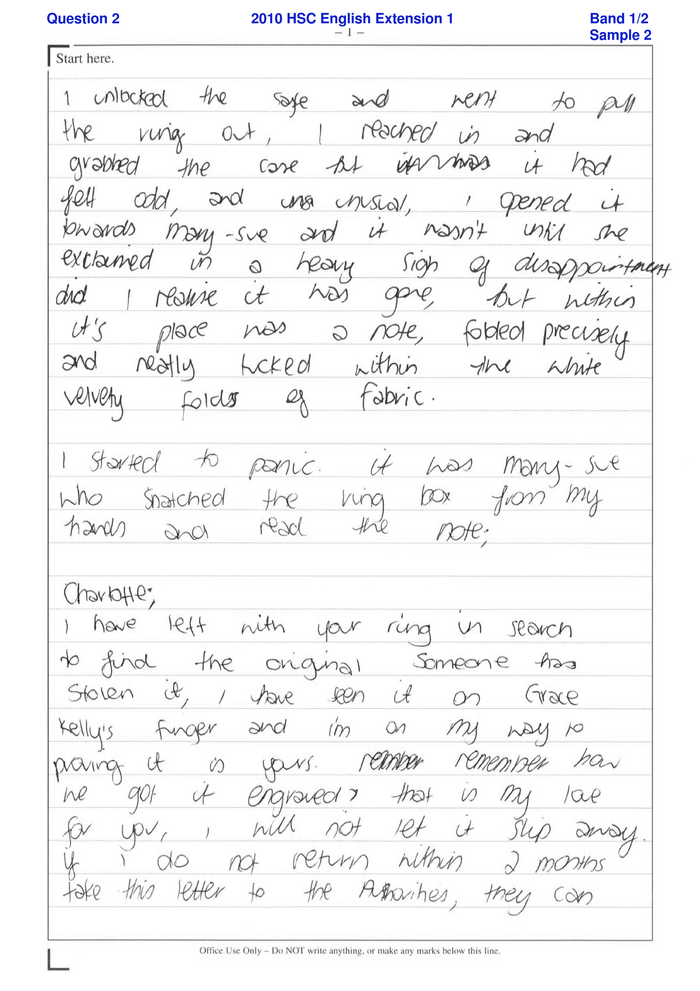 Question 2
2010 HSC English Extension 1
Band 1/2
Sample 2
– 1 –
Start here.
I unlocked the safe and went to pull
the ring out, I reached in and
grabbed the case it had
felt odd, and unusual, I opened it
towards mary-sue and it wasn't until she
exclaimed in a heavy sigh of disappointment
did I realise it was gone, but within
it's place was a note, folded precisely
and neatly tucked within the white
velvety folds of fabric.
I started to panic. it was mary-sue
who snatched the ring box from my
hands and read the note;
Charlotte;
I have left with your ring in search
to find the original someone has
stolen it, I have seen it on Grace
Kelly's finger and i'm on my way to
proving it is yours. remember how
we got it engraved? that is my love
for you, I will not let it slip away.
if i do not return within 2 months
take this letter to the Authorities, they can
Office Use Only – Do NOT write anything, or make any marks below this line.